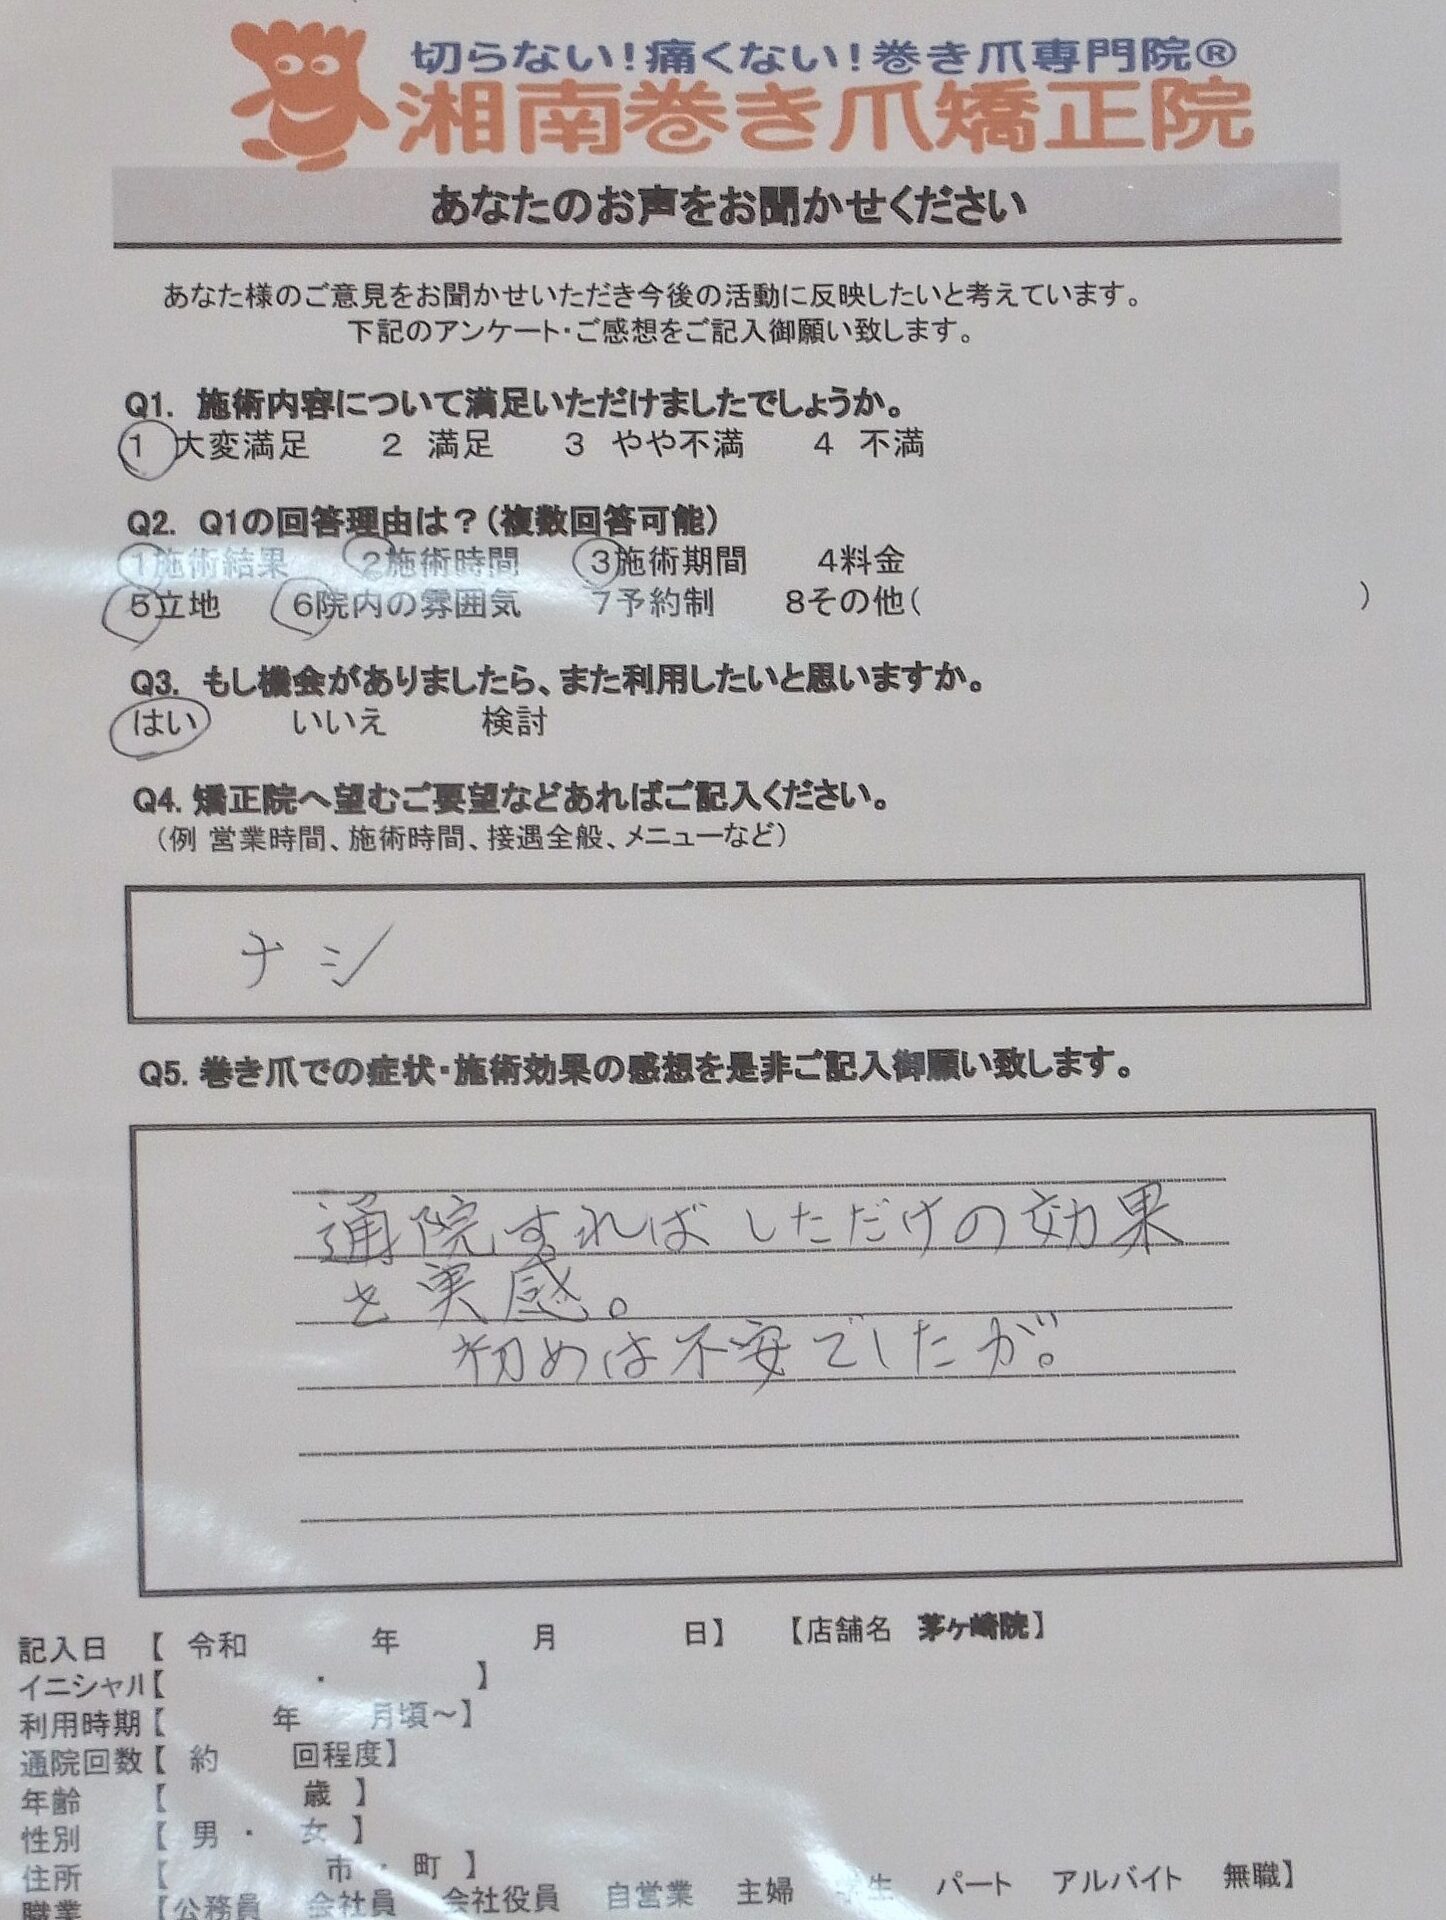 切らない！痛くない！巻き爪専門院®
湘南巻き爪矯正院
あなたのお声をお聞かせください
あなた様のご意見をお聞かせいただき今後の活動に反映したいと考えています。
下記のアンケート・ご感想をご記入御願い致します。
Q1. 施術内容について満足いただけましたでしょうか。
1 大変満足 2 満足 3 やや不満 4 不満
Q2. Q1の回答理由は？（複数回答可能）
1施術結果 2施術時間 3施術期間 4料金
5立地 6院内の雰囲気 7予約制 8その他（ ）
Q3. もし機会がありましたら、また利用したいと思いますか。
はい いいえ 検討
Q4. 矯正院へ望むご要望などあればご記入ください。
（例 営業時間、施術時間、接遇全般、メニューなど）
ナシ
Q5. 巻き爪での症状・施術効果の感想を是非ご記入御願い致します。
通院すればしただけの効果
を実感。
初めは不安でしたが。
記入日 【 令和 年 月 日】 【店舗名 茅ヶ崎院】
イニシャル【 ・ 】
利用時期【 年 月頃～】
通院回数【 約 回程度】
年齢 【 歳 】
性別 【 男 ・ 女 】
住所 【 市 ・ 町 】
職業 【公務員 会社員 会社役員 自営業 主婦 学生 パート アルバイト 無職】